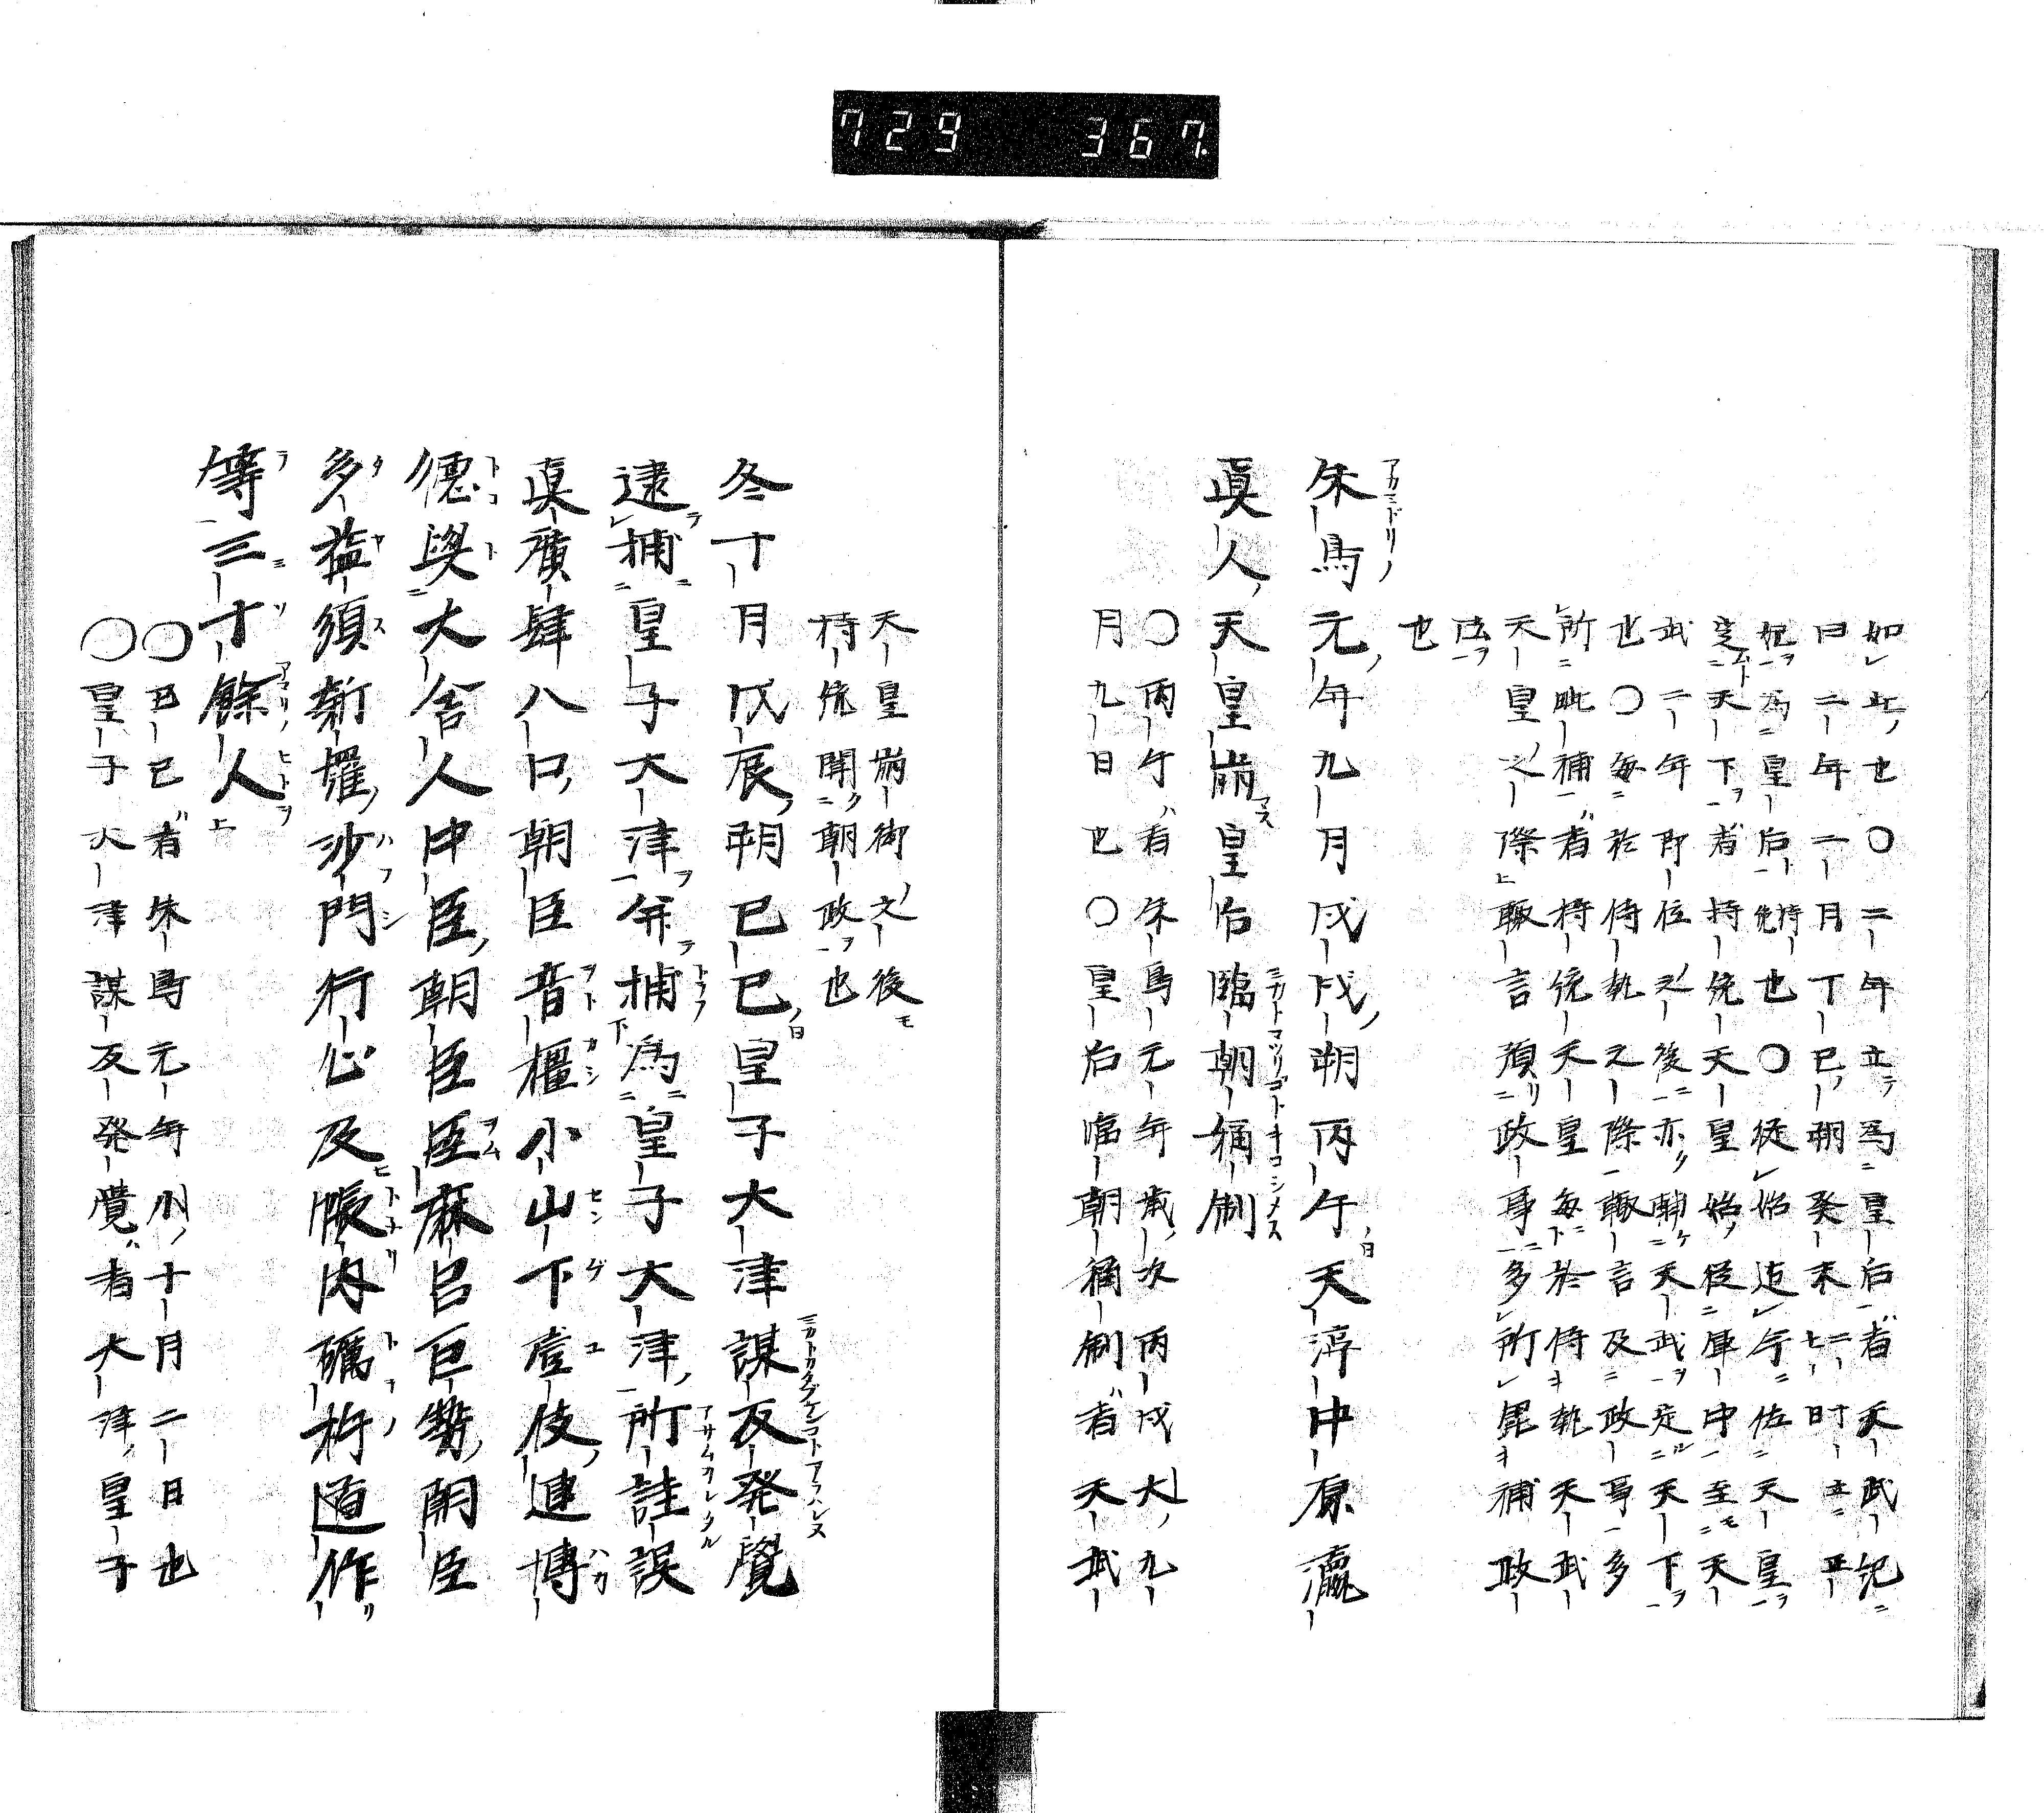 729 367.
如此也〇二年立為皇后者天武紀
曰二年二月丁巳朔癸未二十七日立正
妃為皇后持統也〇従始迄今佐天皇
定天下者持統天皇始従軍中至天
武二年即位之後亦輔天武定天下
也〇毎於侍執之際輙言及政事多
所毗補者持統天皇毎於侍執天武
天皇之際輙言須政事多所毘補政
法
也
朱鳥元年九月戊戌朔丙午天渟中原瀛
真人天皇崩皇后臨朝稱制
〇丙午者朱鳥元年歳次丙戌大九
月九日也〇皇后臨朝稱制者天武
天皇崩御之後
持統聞朝政也
冬十月戊辰朔己巳皇子大津謀反発覺
逮捕皇子大津并捕為皇子大津所詿誤
真廣肆八口朝臣音橿小山下壹伎連博
德與大舎人中臣朝臣臣麻呂巨勢朝臣
多益須新羅沙門行心及帳内礪杵道作
等三十餘人
〇己巳者朱鳥元年小十月二日也
〇皇子大津謀反発覺者大津皇子